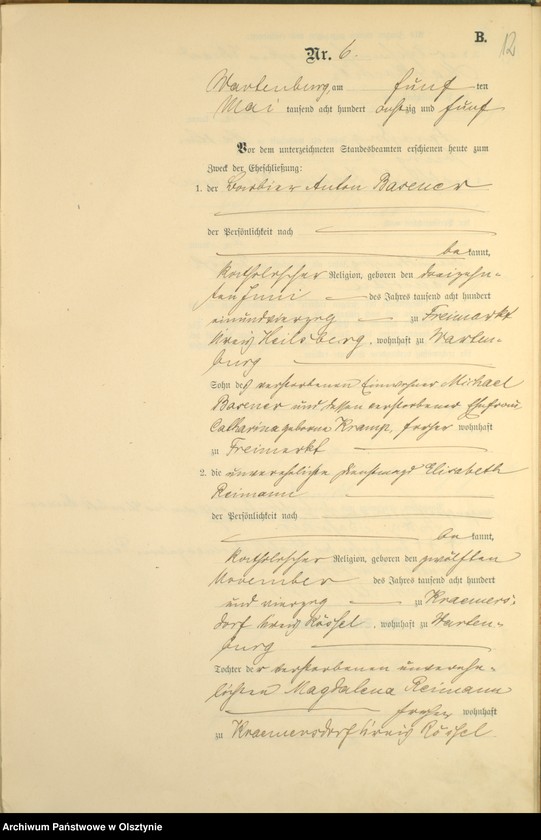 B.
12
Nr. 6.
Wartenburg, am fünf ten
Mai tausend acht hundert achtzig und fünf
Vor dem unterzeichneten Standesbeamten erschienen heute zum
Zweck der Eheschließung:
1. der Barbier Anton Barener
der Persönlichkeit nach
bekannt,
katholischer Religion, geboren den dreizehn-
ten Juni des Jahres tausend acht hundert
einundvierzig zu Freimarkt
Kreis Heilsberg, wohnhaft zu Warten-
burg
Sohn des verstorbenen Einwohner Michael
Barener und dessen verstorbener Ehefrau
Catharina geborne Kramp, früher wohnhaft
zu Freimarkt
2. die unverehelichte Dienstmagd Elisabeth
Reimann
der Persönlichkeit nach
bekannt,
katholischer Religion, geboren den zwölften
November des Jahres tausend acht hundert
und vierzig zu Kraemers-
dorf Kreis Rössel, wohnhaft zu Warten-
burg
Tochter der verstorbenen unverehe-
lichten Magdalena Reimann
früher wohnhaft
zu Kraemersdorf Kreis Rössel.
Archiwum Państwowe w Olsztynie